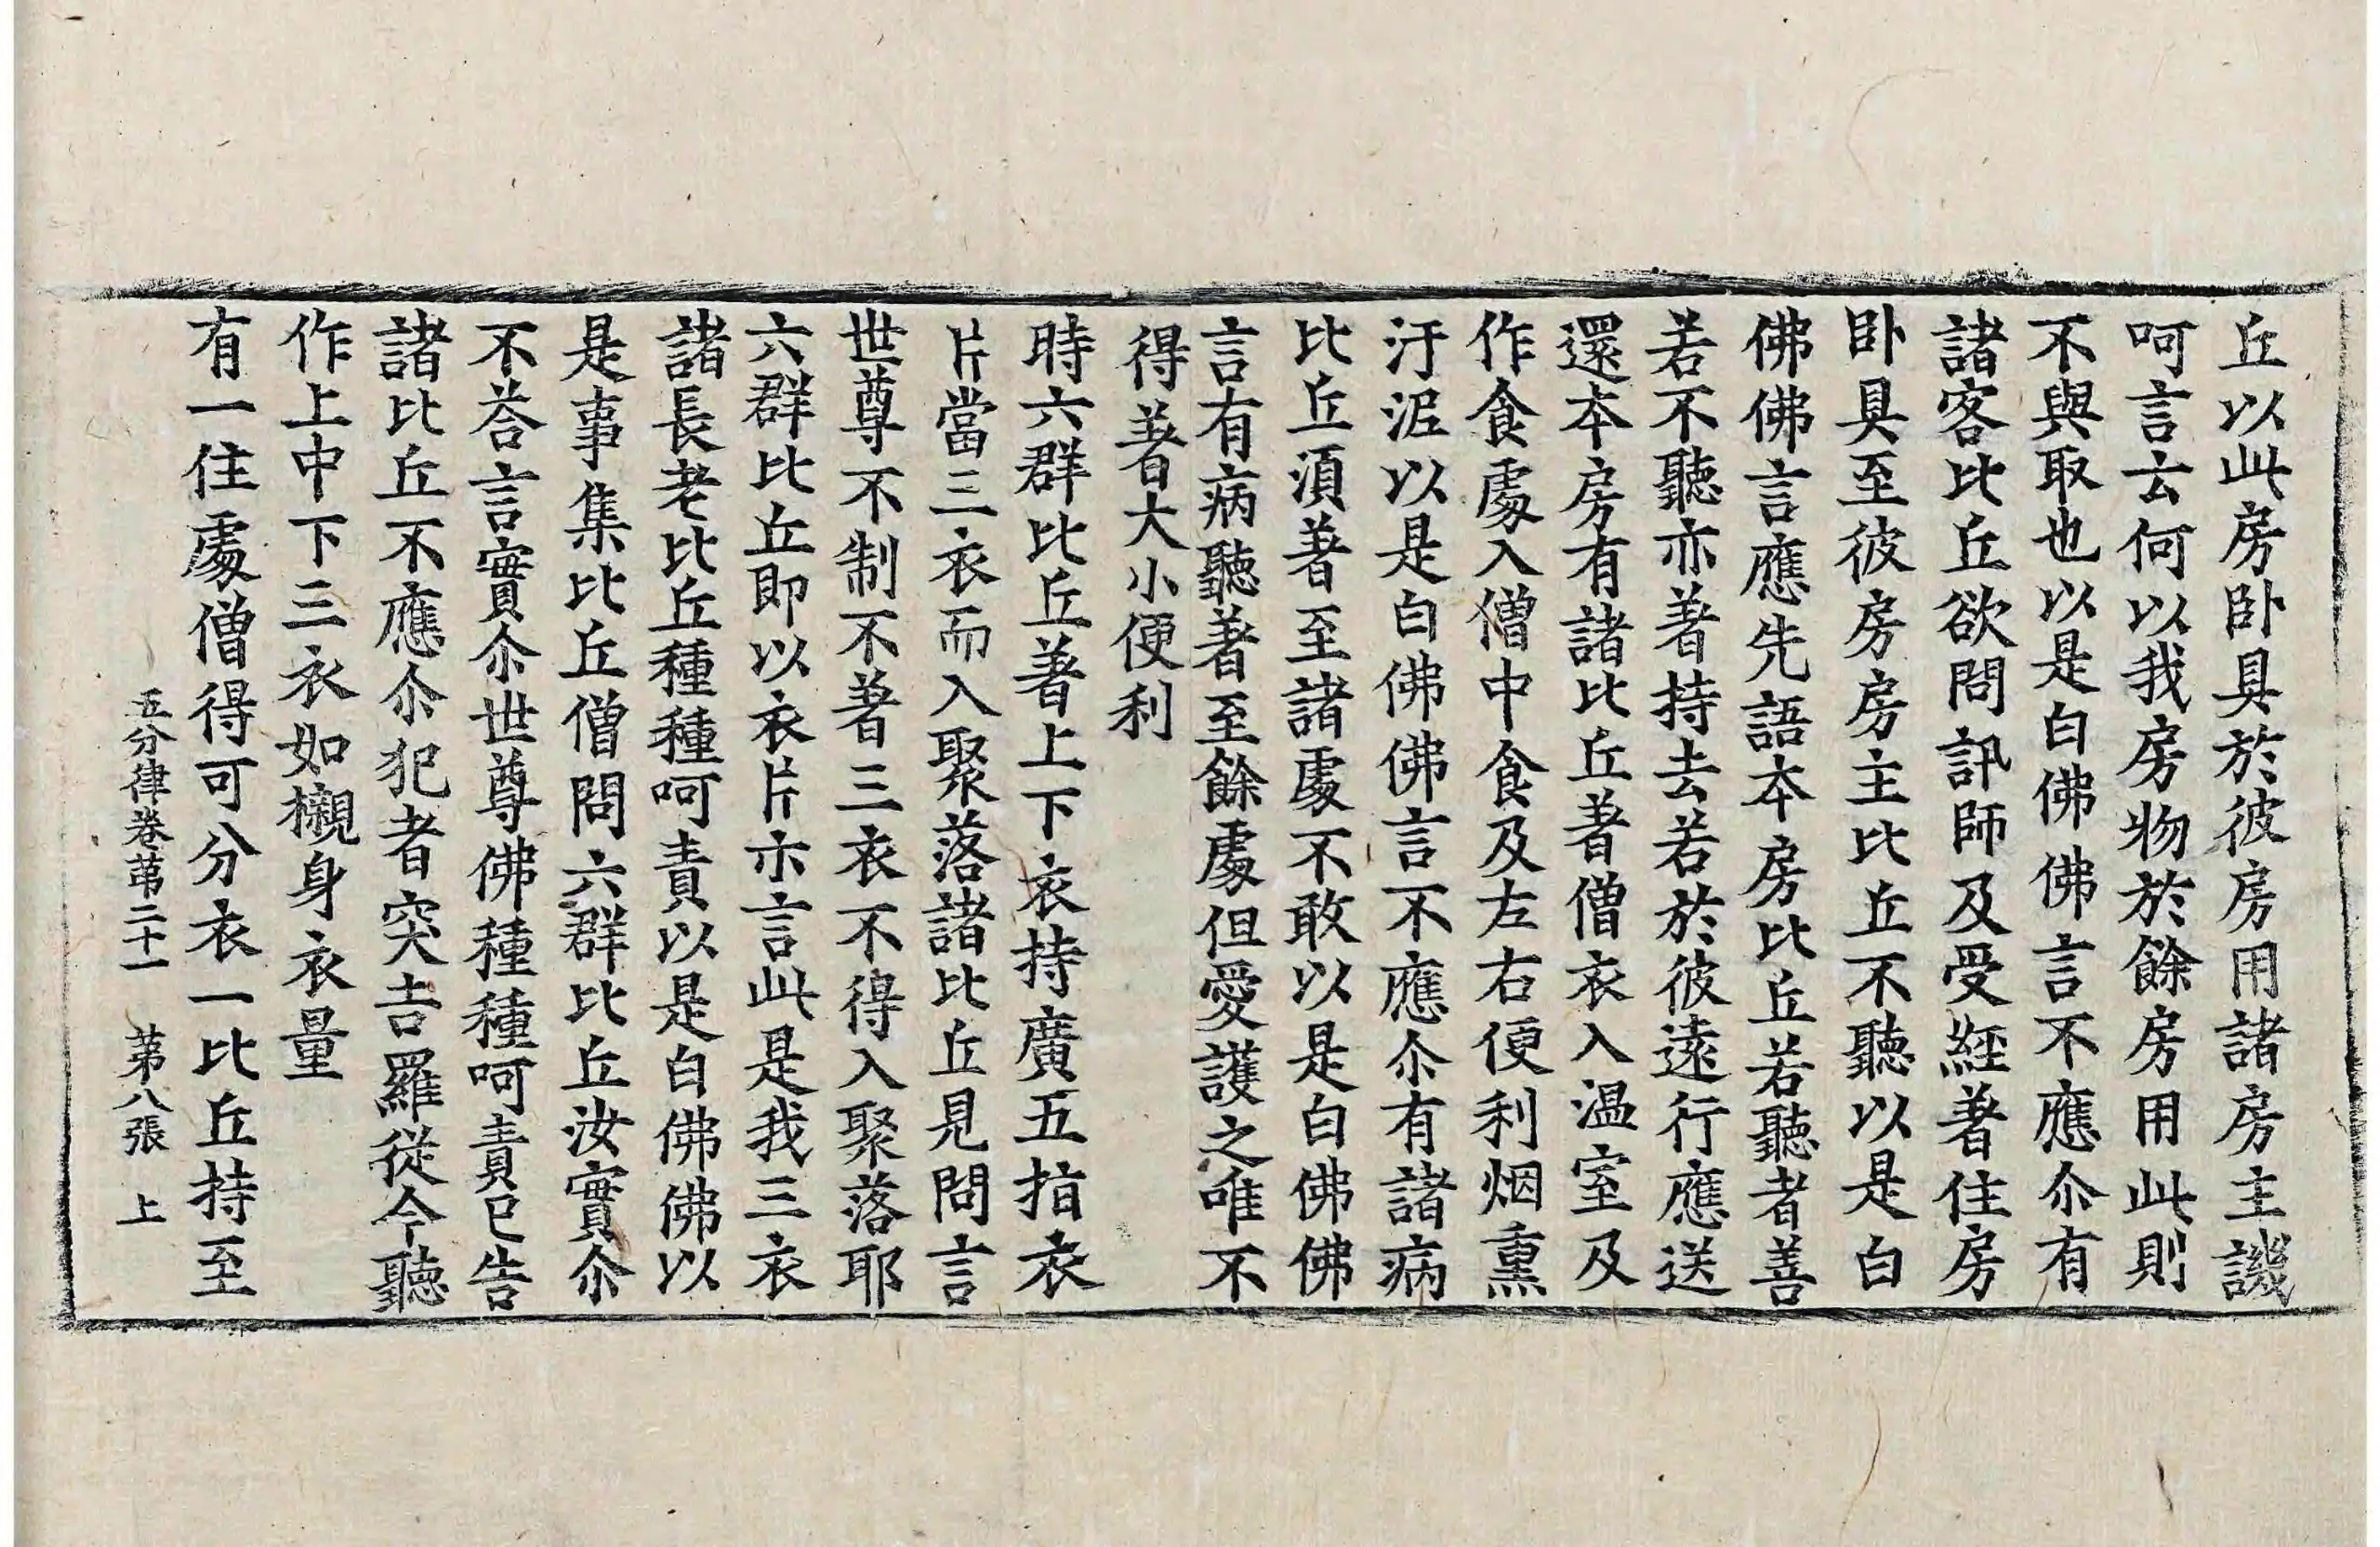 丘以此房卧具於彼房用諸房主譏
呵言云何以我房物於餘房用此則
不與取也以是白佛佛言不應尒有
諸客比丘欲問訊師及受經著住房
卧具至彼房房主比丘不聽以是白
佛佛言應先語本房比丘若聽者善
若不聽亦著持去若於彼遠行應送
還本房有諸比丘著僧衣入温室及
作食處入僧中食及左右便利烟熏
汙泥以是白佛佛言不應尒有諸病
比丘湏著至諸處不敢以是白佛佛
言有病聽著至餘處但愛護之唯不
得著大小便利
時六群比丘著上下衣持廣五指衣
片當三衣而入聚落諸比丘見問言
世尊不制不著三衣不得入聚落耶
六群比丘即以衣片亦言此是我三衣
諸長老比丘種種呵責以是白佛佛以
是事集比丘僧問六群比丘汝實尒
不荅言實尒世尊佛種種呵責已告
諸比丘不應尒犯者突吉羅從今聽
作上中下三衣如襯身衣量
有一住處僧得可分衣一比丘持至
五分律卷苐二十一 苐八張 上